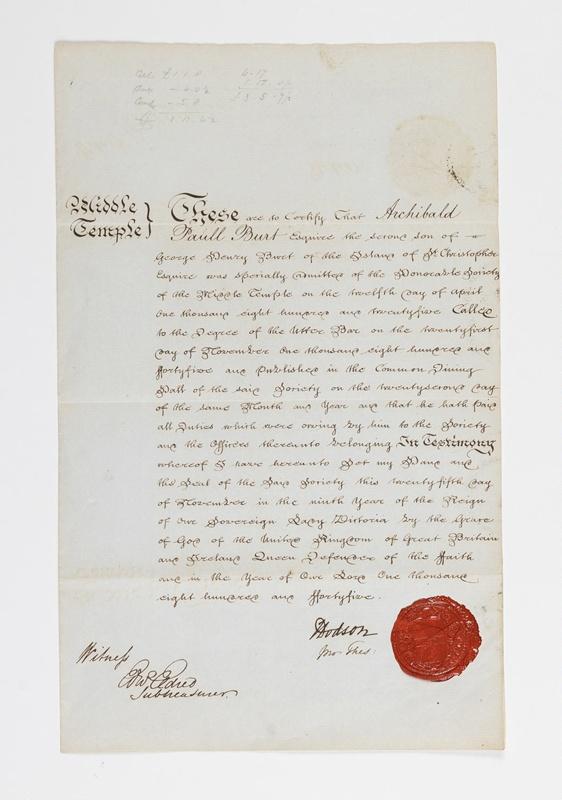 Middle
Temple }
These are to Certify That Archibald
Paull Burt Esquire the second son of
George Henry Burt of the Island of St. Christopher
Esquire was specially admitted of the Honorable Society
of the Middle Temple on the twelfth day of April
One thousand eight hundred and twentyfive Called
to the Degree of the Utter Bar on the twentyfirst
day of November One thousand eight hundred and
ffortyfive and Published in the Common Dining
Hall of the said Society on the twentysecond day
of the same Month and Year and that he hath Paid
all Duties which were owing by him to the Society
and the Officers thereunto belonging In Testimony
whereof I have hereunto Set my Hand and
the Seal of the Said Society this twentyfifth day
of November in the ninth Year of the Reign
of Our Sovereign Lady Victoria by the Grace
of God of the United Kingdom of Great Britain
and Ireland Queen Defender of the Faith
and in the Year of Our Lord One thousand
eight hundred and ffortyfive.
Hodson
Thes:
Witness
Edwd. Eldred
Subtreasurer